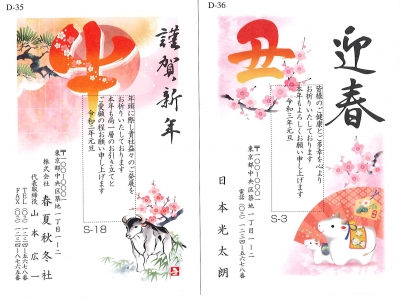 D-35
牛
謹賀新年
年頭に際し貴社益々のご発展を
お祈りいたしております
本年も尚一層のお引き立てと
ご愛顧の程お願い申し上げます
令和三年元旦
S-18
〒一〇一-〇〇〇一
東京都中央区築地一丁目一-二
株式会社 春夏秋冬社
代表取締役 山本広一
TEL(〇三)一二三四-五六七八番
FAX(〇三)一二三四-八七六五番
D-36
丑
迎春
皆様のご健康とご多幸を心より
お祈りいたしております
本年もよろしくお願い申し上げます
令和三年元旦
S-3
〒一〇一-〇〇〇一
東京都中央区築地一丁目一-二
電話(〇三)一二三四-五六七八番
日本光太朗